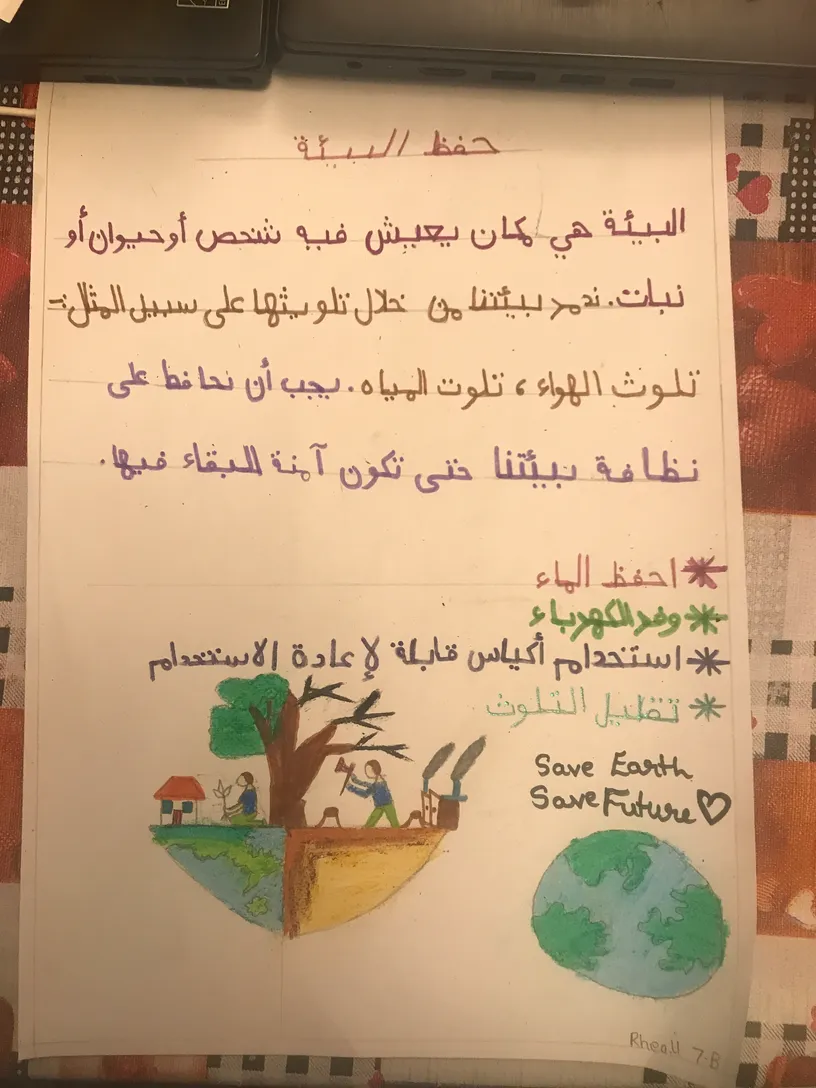 حفظ البيئة
البيئة هي مكان يعيش فيه شخص أو حيوان أو
نبات. ندمر بيئتنا من خلال تلويثها على سبيل المثال:-
تلوث الهواء، تلوت المياه. يجب أن نحافظ على
نظافة بيئتنا حتى تكون آمنة للبقاء فيها.
* احفظ الماء
* وفر الكهرباء
* استخدام أكياس قابلة لإعادة الاستخدام
* تقليل التلوث
Save Earth
Save Future ♡
7-B